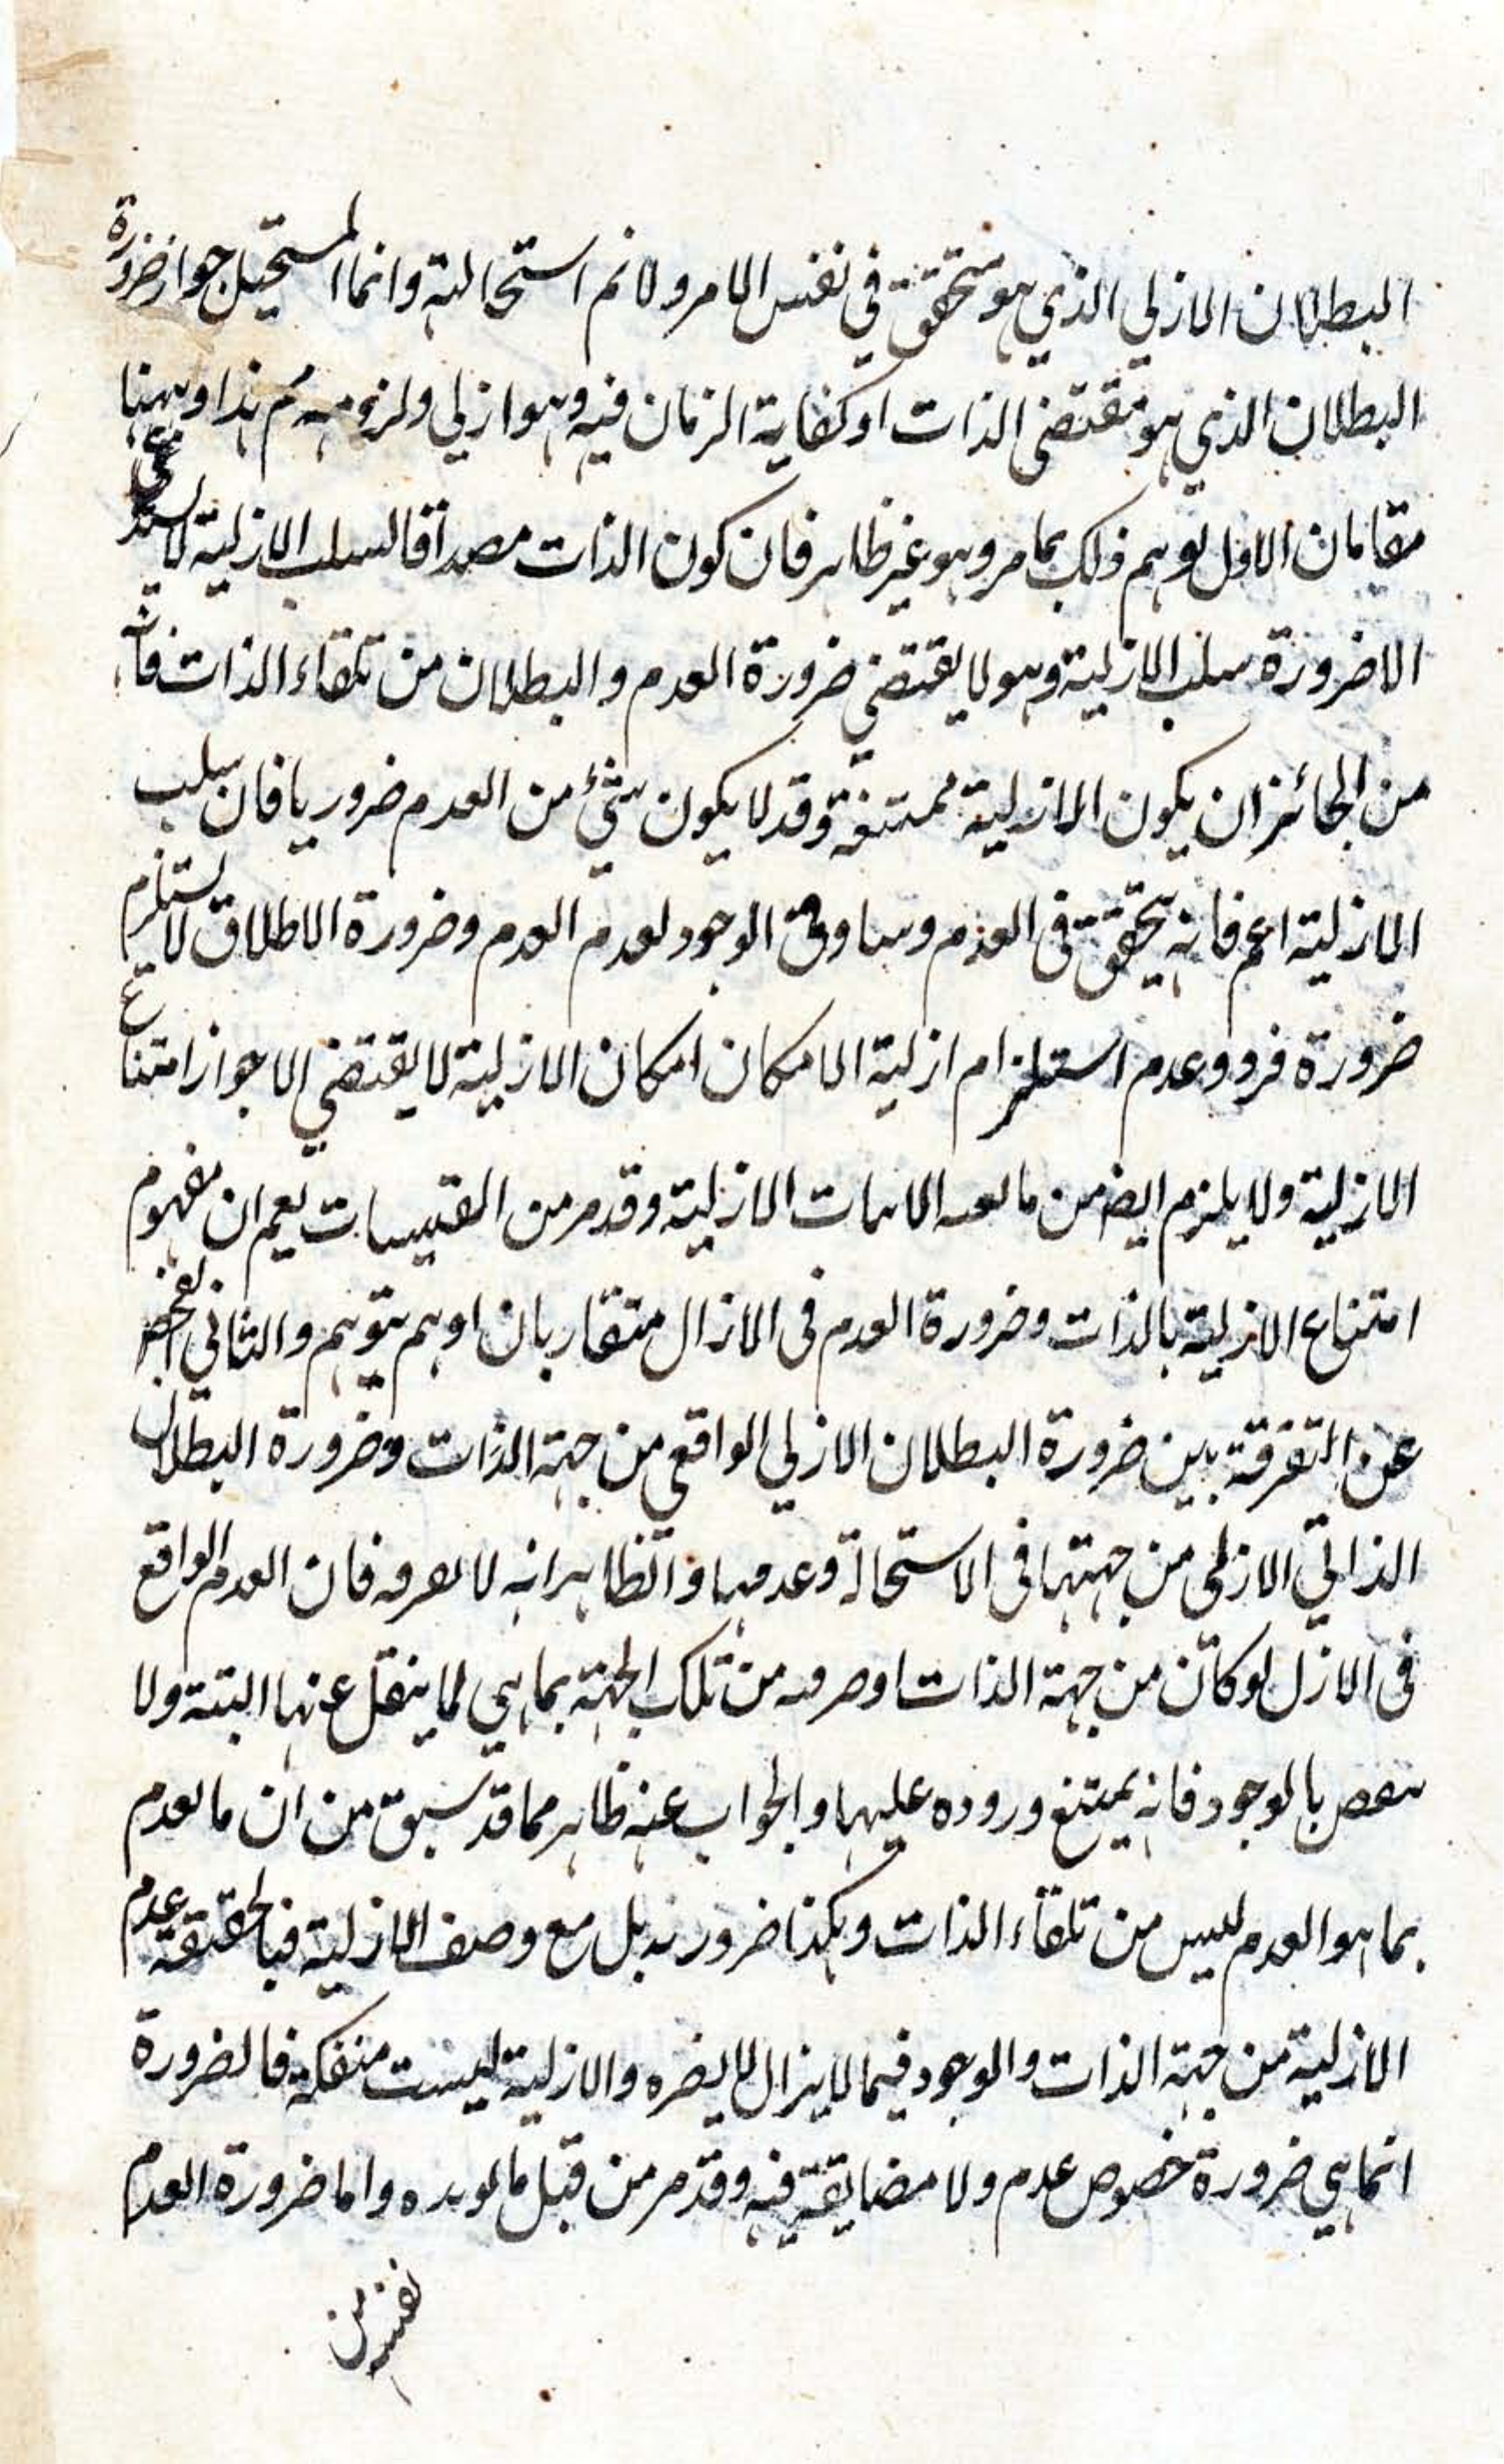 البطلان الازلي الذي هو متحقق في نفس الامر ولانم استحالته وانما المستحيل جواز ضرورة
البطلان الذي هو مقتضى الذات او كفاية الزمان فيه وهو ازلي ولزومه مم هذا وههنا
مقامان الاول توهم ذلك بما مر وهو غير ظاهر فان كون الذات مصداقا لسلب الازلية لا يستدعي
الا ضرورة سلب الازلية وهو لا يقتضي ضرورة العدم والبطلان من تلقاء الذات فانه
من الجائز ان يكون الازلية ممتنعة وقد لا يكون شيء من العدم ضروريا فان سلب
الازلية اعم فانه يتحقق في العدم وساوق الوجود لعدم العدم وضرورة الاطلاق لا يستلزم
ضرورة فرد وعدم استلزام ازلية الامكان امكان الازلية لا يقتضي الا جواز امتناع
الازلية ولا يلزم ايضا من الازلية وقد مر من القبيسات نعم ان مفهوم
امتناع الازلية بالذات وضرورة العدم في الازال متقاربان اوهم توهم والثاني الفحص
عن التفرقة بين ضرورة البطلان الازلي الواقعي من جهة الذات وضرورة البطلان
الذاتي الازلي من جهتها في الاستحالة وعدمها والظاهر انه لا فان العدم الواقع
في الازل لو كان من جهة الذات او من تلك الجهة بما هي لما ينتقل عنها البتة ولا
بالوجود فانه يمتنع وروده عليها والجواب عنه ظاهر مما قد سبق من ان ما لعدم
بما هو العدم ليس من تلقاء الذات وهكذا ضرورته بل مع وصف الازلية فبالحقيقة عدم
الازلية من جهة الذات والوجود فيما لا يزال لا يضره والازلية ليست منفكة فالضرورة
انما هي ضرورة خصوص عدم ولا مضايقة فيه وقد مر من قبل ما يؤيده واما ضرورة العدم
نفس من